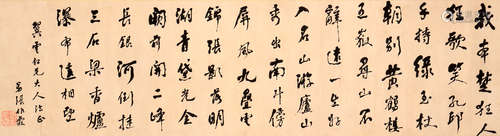 我本楚狂人
狂歌笑孔邱
手持綠玉杖
朝別黃鶴樓
五嶽尋山不
辭遠一生好
入名山游廬山
秀出南斗傍
屏風九疊雲
錦張影落明
湖青黛光金
闕前開二峰
長銀河倒挂
三石梁香爐
瀑布遙相望
翼雲仁兄大人法正